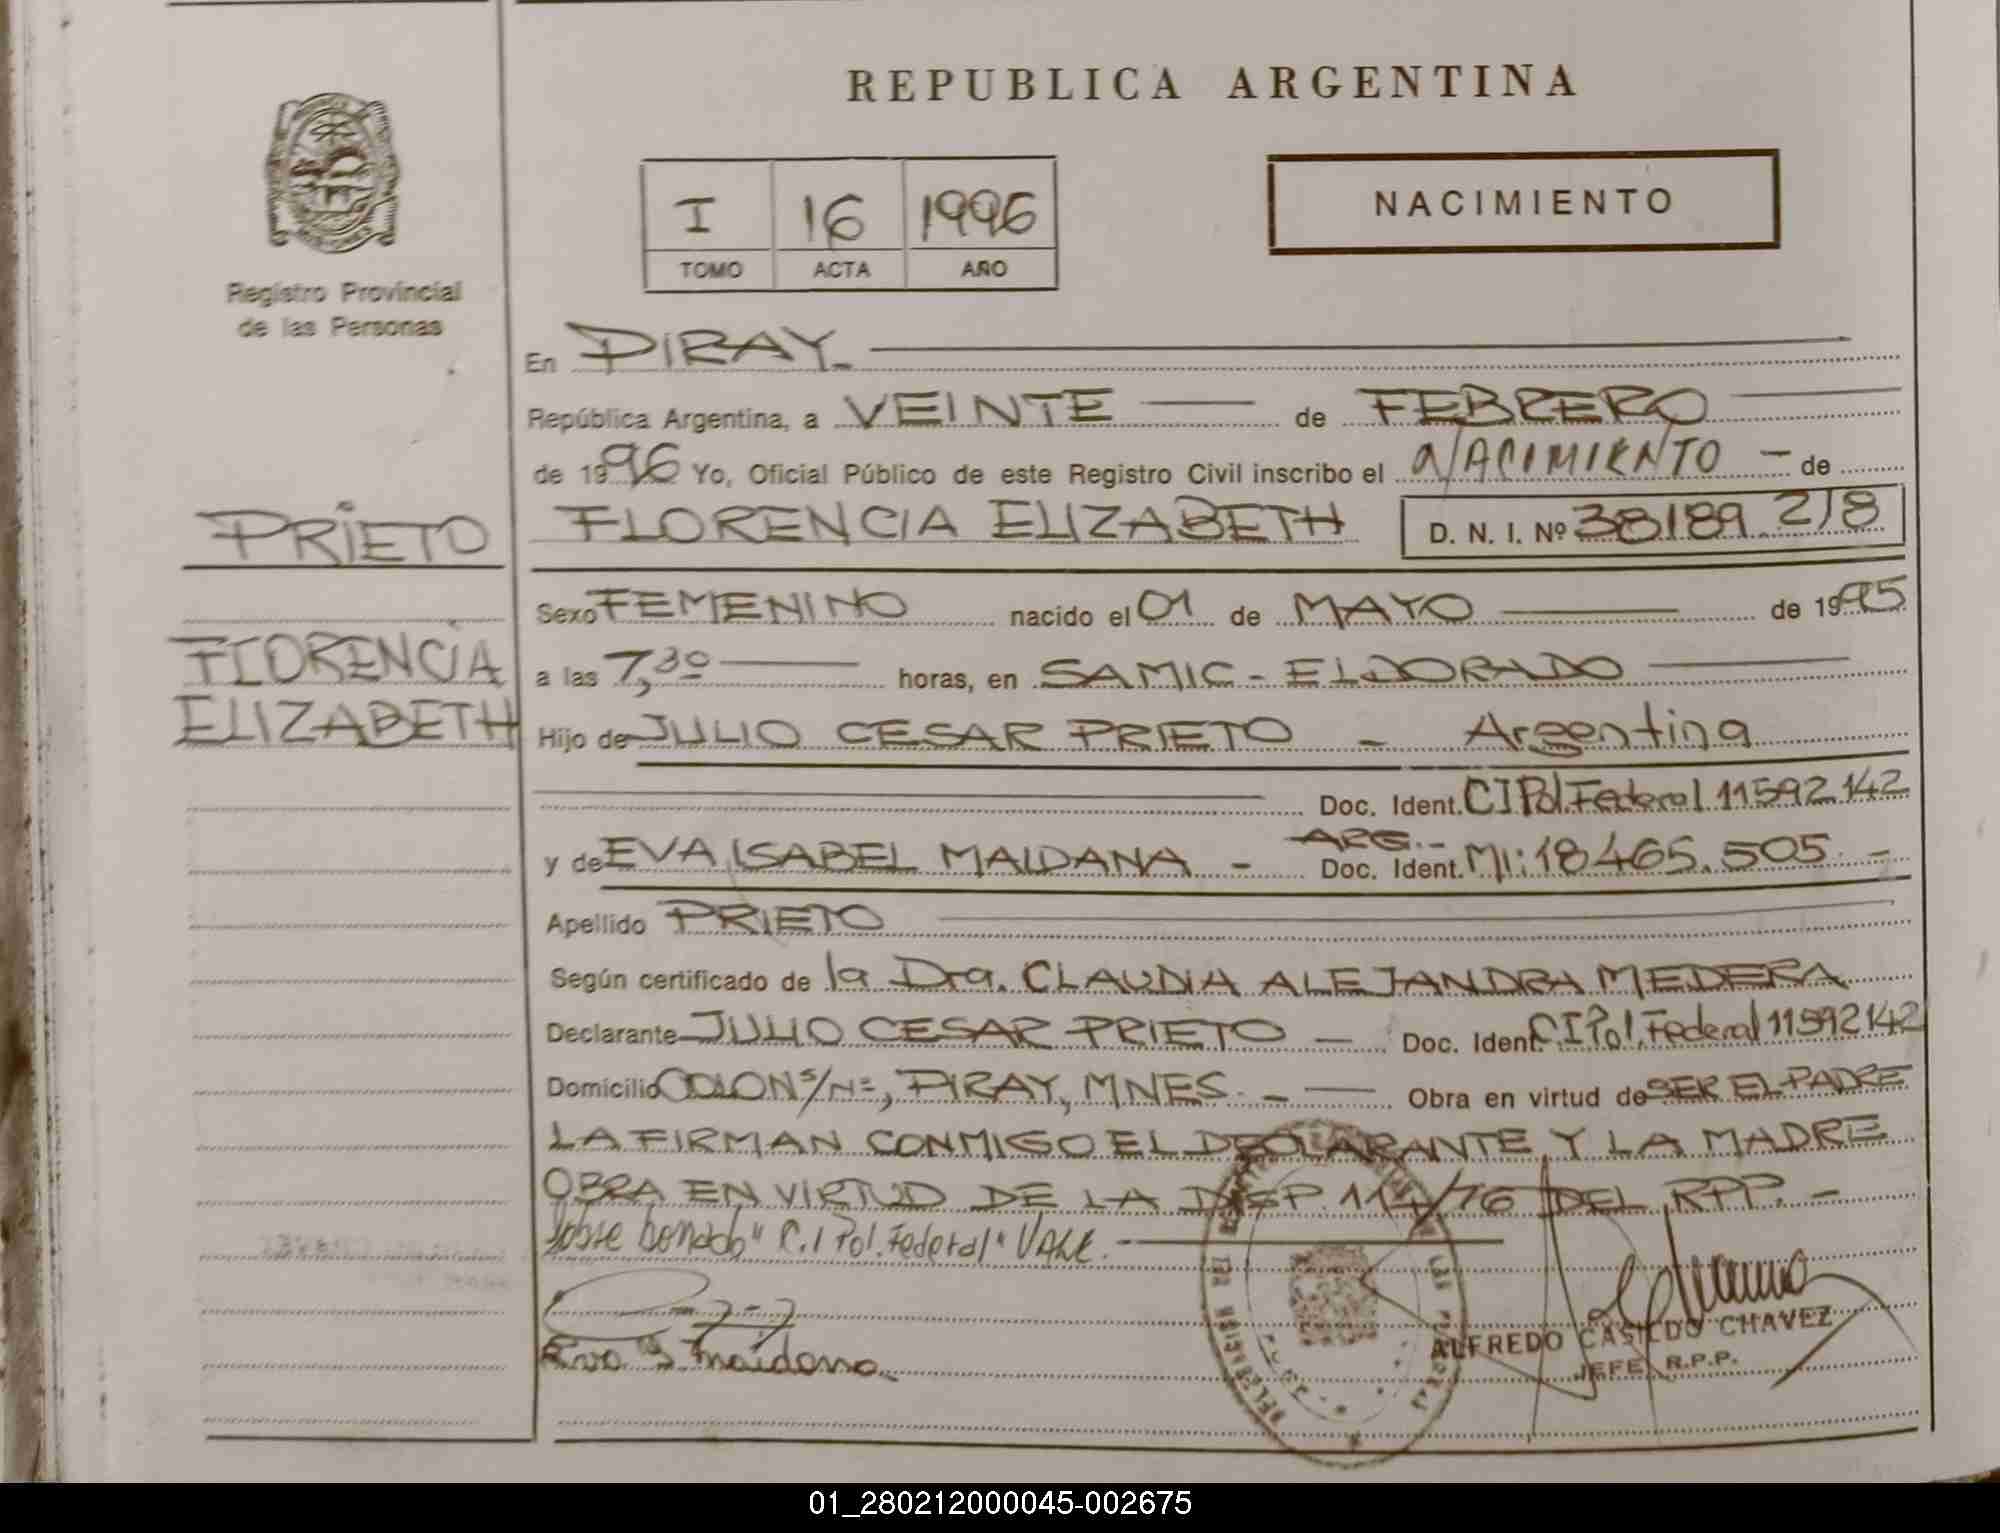 REPUBLICA ARGENTINA
Registro Provincial
de las Personas
I 16 1996
TOMO ACTA AÑO
NACIMIENTO
PRIETO
FLORENCIA
ELIZABETH
En PIRAY.
República Argentina, a VEINTE de FEBRERO
de 1996 Yo, Oficial Público de este Registro Civil inscribo el NACIMIENTO - de
FLORENCIA ELIZABETH D. N. I. Nº 38189.218
Sexo FEMENINO nacido el 01 de MAYO de 1995
a las 7,30 horas, en SAMIC - ELDORADO
Hijo de JULIO CESAR PRIETO - Argentina
Doc. Ident. CIPol.Federal 11592142
y de EVA ISABEL MALDANA - ARG.- Doc. Ident. MI: 18465.505. -
Apellido PRIETO
Según certificado de la Dra. CLAUDIA ALEJANDRA MEDERA
Declarante JULIO CESAR PRIETO - Doc. Ident. CIPol. Federal 11592142
Domicilio COLON s/Nº, PIRAY, MNES. - Obra en virtud de SER EL PADRE
LA FIRMAN CONMIGO EL DECLARANTE Y LA MADRE
OBRA EN VIRTUD DE LA DISP. 114/76 DEL RPP. -
Sobre borrado "C.I Pol. Federal" VALE.
Eva I Maidana
ALFREDO CASILDO CHAVEZ
JEFE R.P.P.
01_280212000045-002675